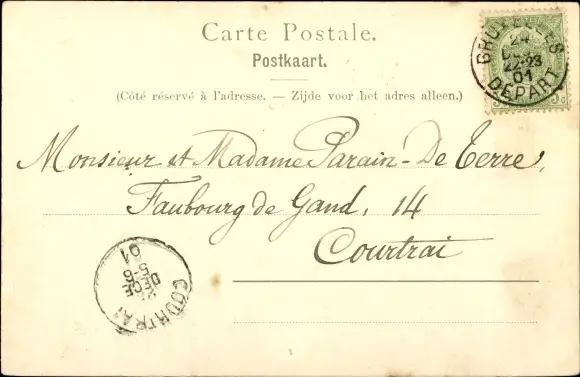 Carte Postale.
Postkaart.
(Côté réservé à l'adresse. — Zijde voor het adres alleen.)
BRUXELLES
24
22-23
01
DEPART
Monsieur et Madame Parain-De Terre,
Faubourg de Gand, 14
Courtrai
COURTRAI
DECE
5-6
01